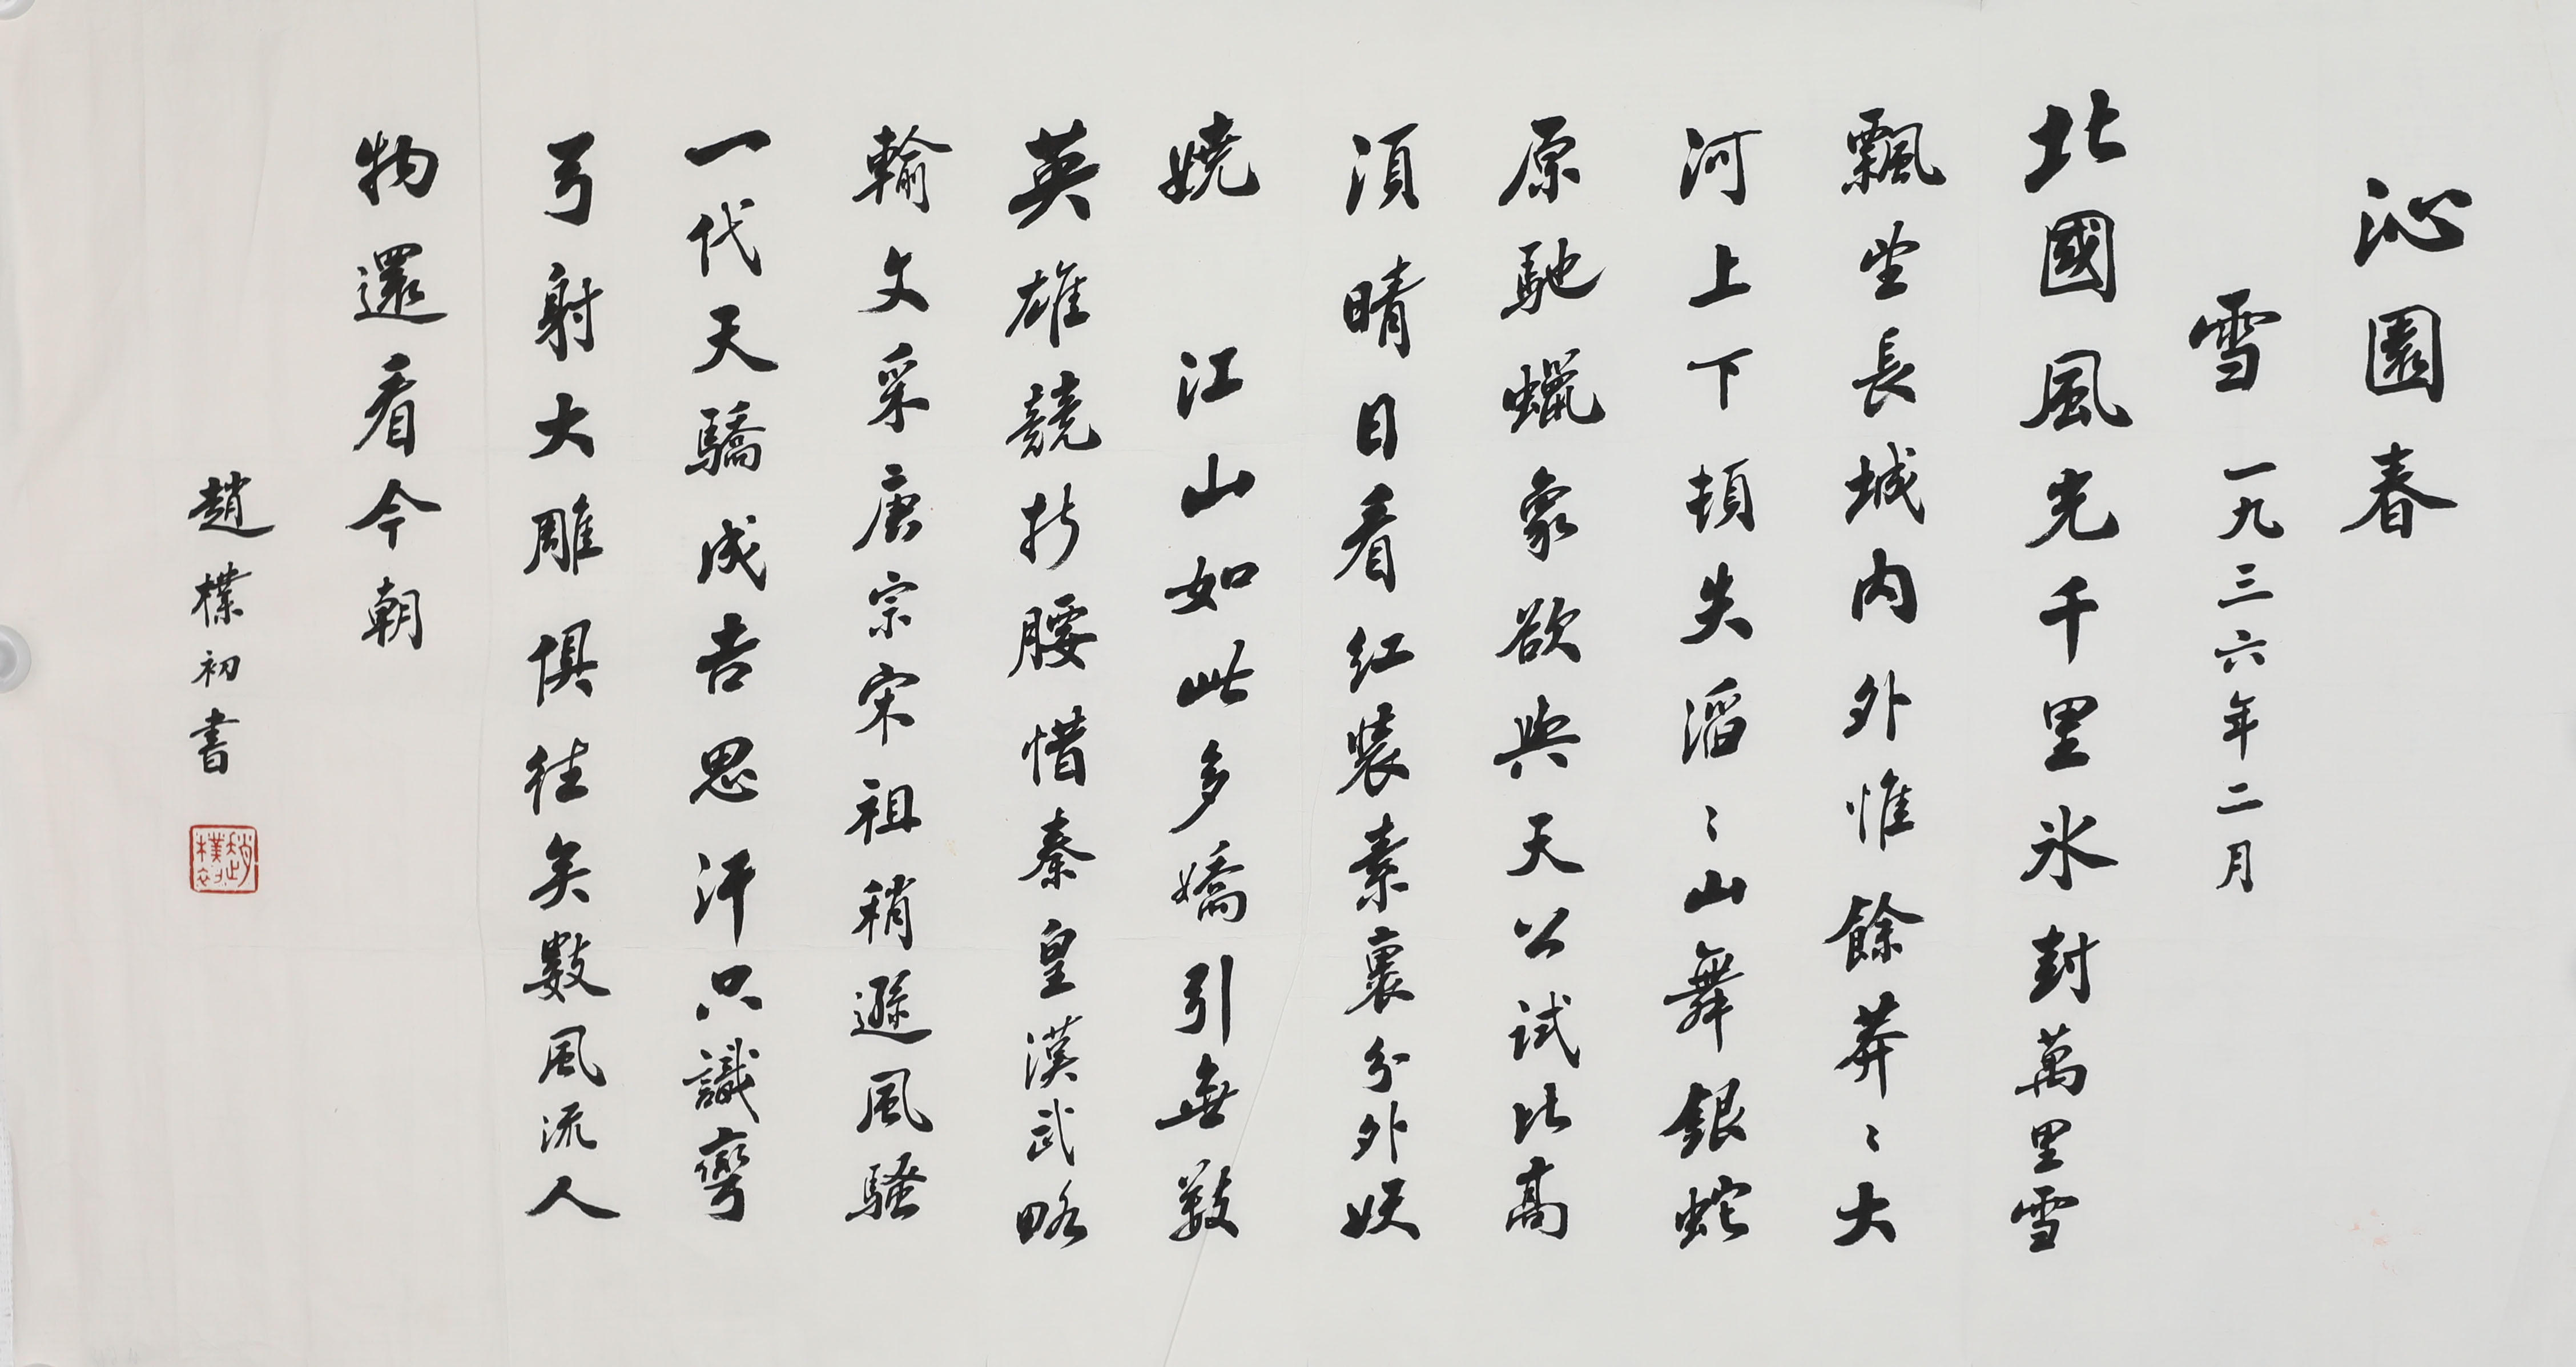 沁園春
雪 一九三六年二月
北國風光千里氷封萬里雪
飄望長城内外惟餘莽〻大
河上下頓失滔〻山舞銀蛇
原馳蠟象欲與天公試比高
須晴日看红装素裹分外妖
嬈 江山如此多嬌引無數
英雄競折腰惜秦皇漢武略
輸文采唐宗宋祖稍遜風騷
一代天驕成吉思汗只識彎
弓射大雕俱往矣數風流人
物還看今朝
趙樸初書
趙樸初